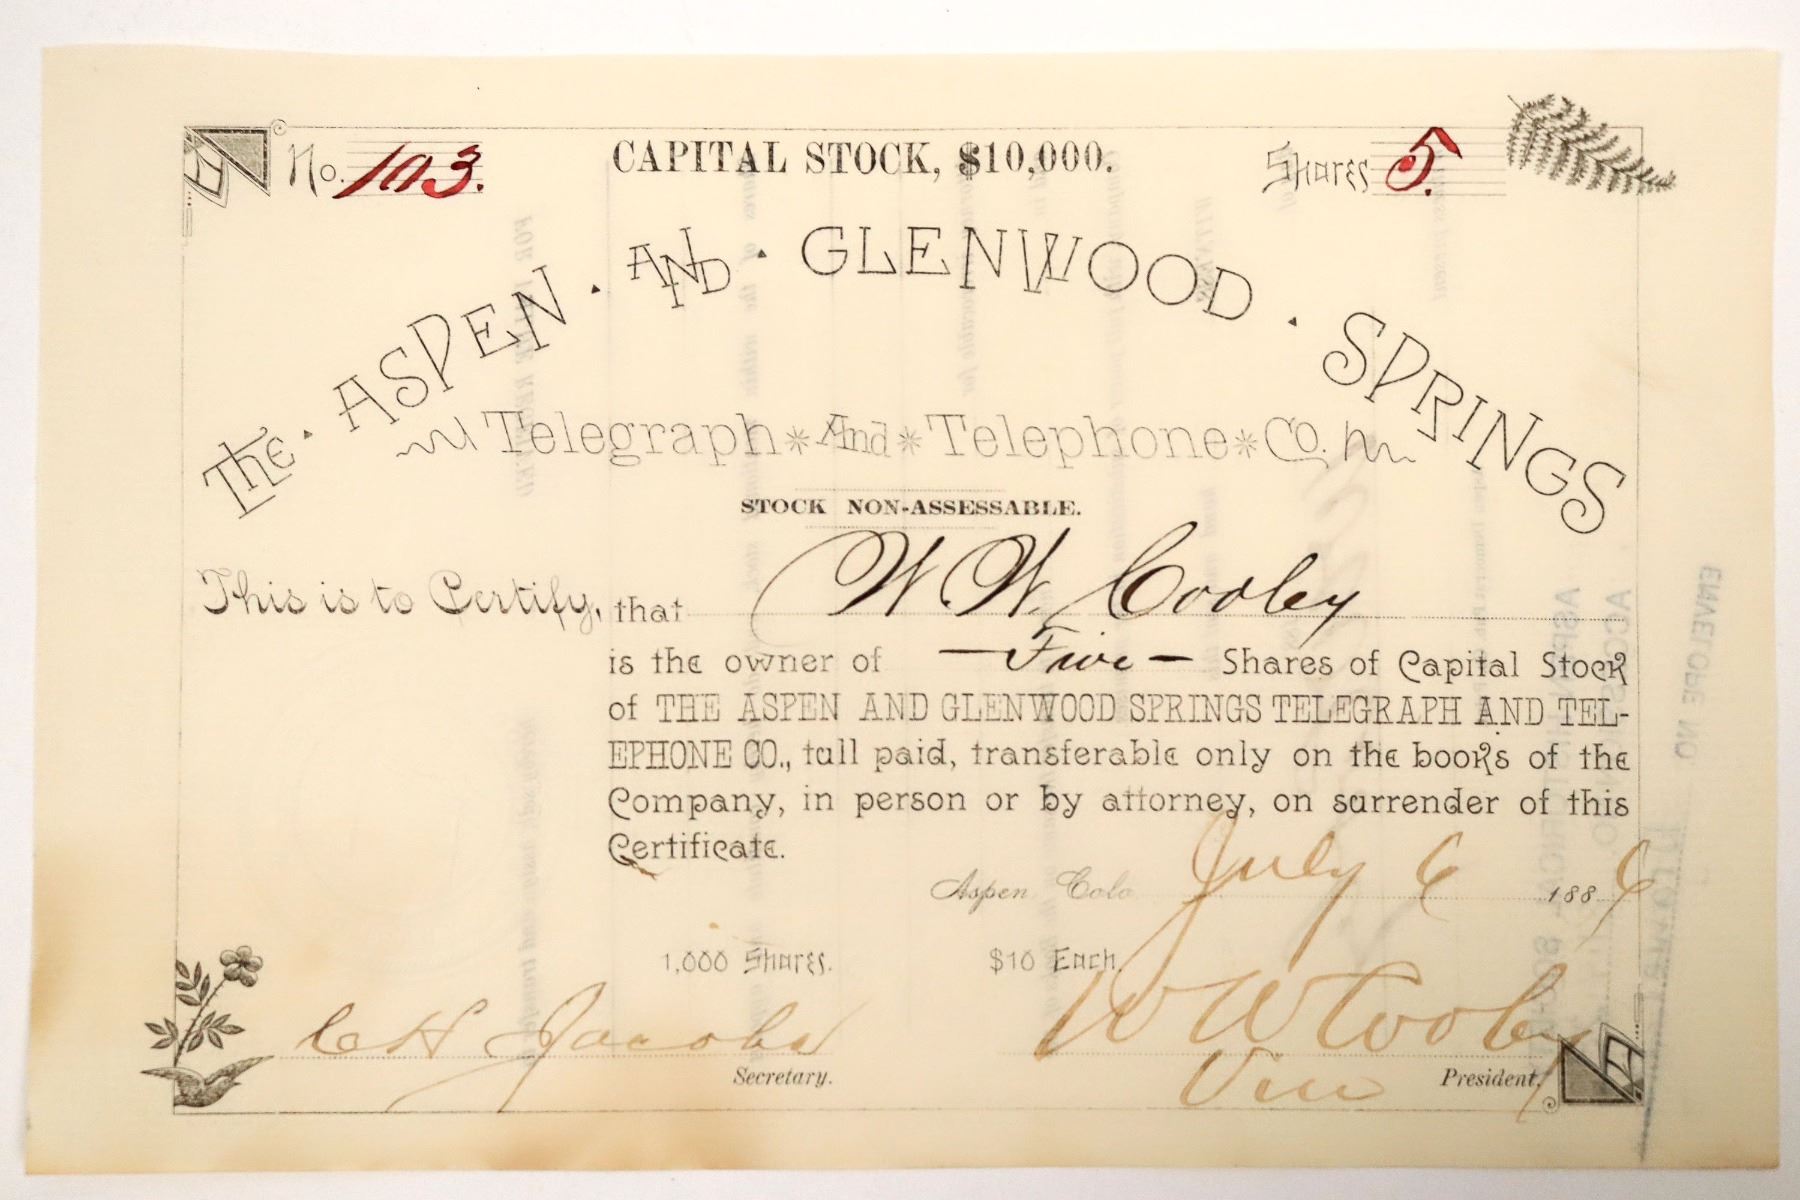 No. 103.
CAPITAL STOCK, $10,000.
Shares 5.
The · ASPEN · AND · GLENWOOD · SPRINGS
Telegraph * And * Telephone * Co.
STOCK NON-ASSESSABLE.
This is to Certify, that W. W. Cooley
is the owner of — Five — Shares of Capital Stock
of THE ASPEN AND GLENWOOD SPRINGS TELEGRAPH AND TEL-
EPHONE CO., full paid, transferable only on the books of the
Company, in person or by attorney, on surrender of this
Certificate.
Aspen Colo July 6 1886
1,000 Shares. $10 Each.
C H Jacobs W W Cooley
Secretary. Vice President.
ENVELOPE NO